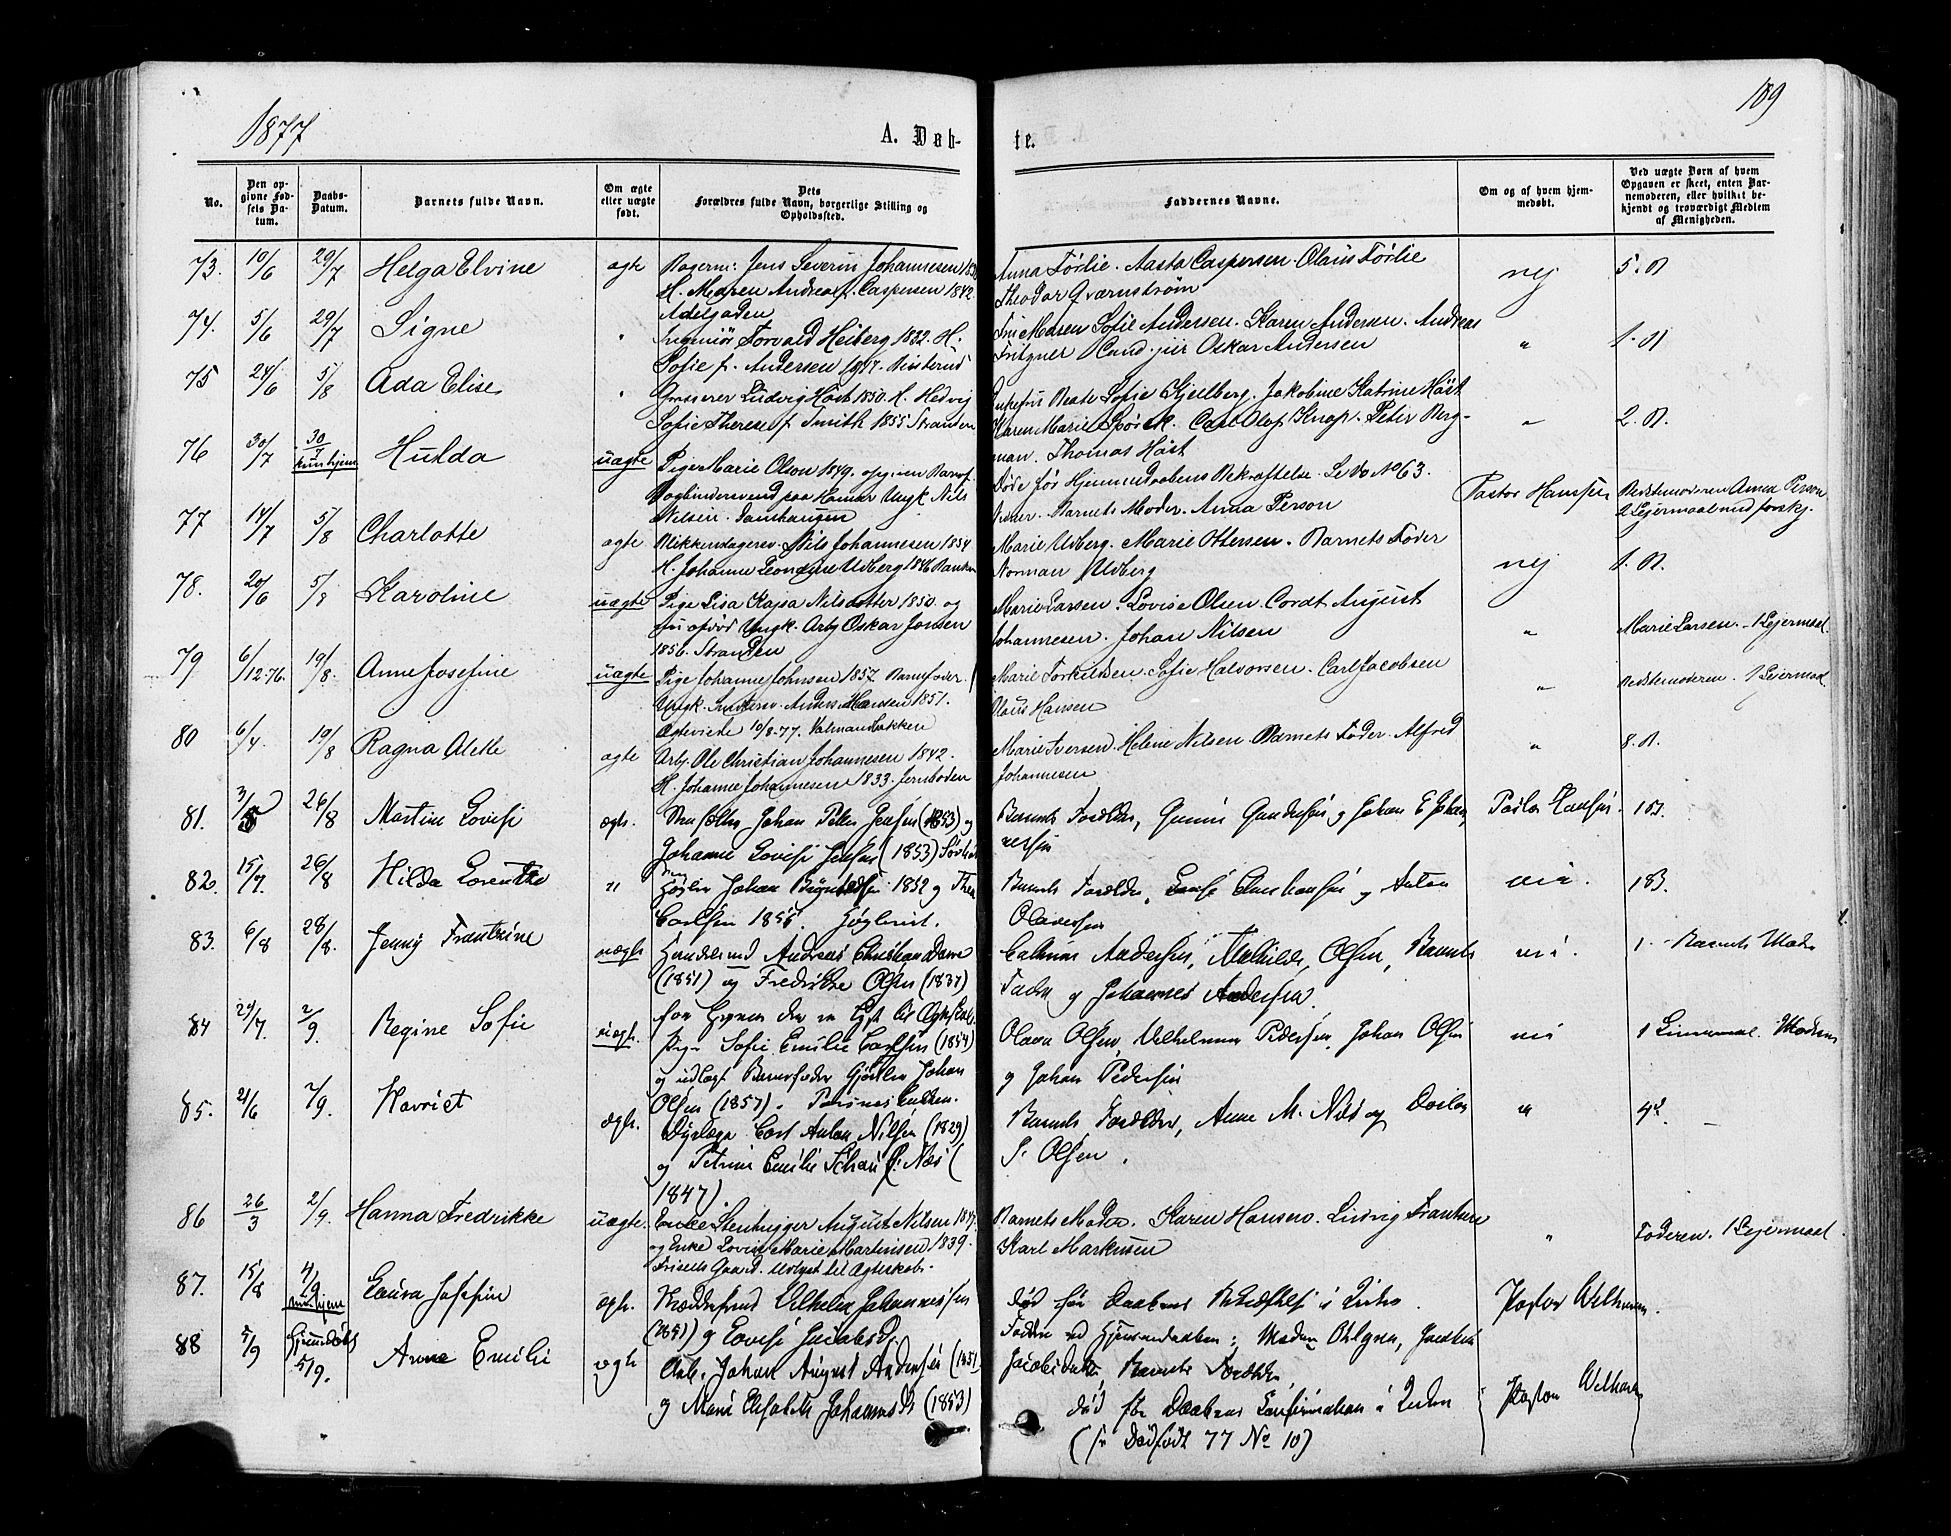 1877
A. Døb-
te.
109
No.
Den op-
givne Fød-
sels Da-
tum.
Daabs-
Datum.
Barnets fulde Navn.
Om ægte
eller uægte
født.
Dets
Forældres fulde Navn, borgerlige Stilling og
Opholdssted.
Faddernes Navne.
Om og af hvem hjem-
medøbt.
Ved uægte Børn af hvem
Opgaven er skeet, enten Bar-
nemoderen, eller hvilket be-
kjendt og troværdigt Medlem
af Menigheden.
73. 10/6 29/7 Helga Elvine ægte Bagerm: Jens Severin Johannesen
H. Maren Andrea f. Caspersen 1842.
Adelgaden
Anna Førlie. Aasta Caspersen. Olaus Førlie
Theodor Qvarnstrøm
nej 5. B
74. 5/6 29/7 Signe " Ingeniør Torvald Heiberg 1832. H.
Sofie f. Andersen
Fru Maren Sofie Andersen. Karen Andersen. Andreas
Fritzner Cand. jur Oskar Andersen
" 1. B
75 24/6 5/8 Ada Elise " Ludvig Høst 1850. H. Hedvig
Sofie Therese f. Smith 1855 Stranden
Beate Sofie Kjelberg. Jakobine Katrine Høst
Karen Marie Spørck. Carl Olaf Knap. Peter Berg-
man. Thomas Høst
" 2. B.
76 30/7 30/7 kun hjem Hulda uægte Pige Marie Olson 1849. opgiven Barnef.
Bogbindersvend paa Hamar Ungk. Nils
Nilsen. Damhaugen
Døde før Hjemmedaabens Bekræftelse. Se No 63.
Barnets Moder. Anna Person
Pastor Hanssen Bedstemoderen Anna Person
2 Lejermaal med forskj.
77 14/7 5/8 Charlotte ægte Blikkenslagersv. Nils Johannesen 1854
H. Johanne Leonzine Udberg 1846
Marie Udberg. Marie Ottersen. Barnets Fader
Norman Udberg
nej 1. B.
78. 20/6 5/8 Karoline uægte Pige Lisa Kajsa Nilsdotter 1850. og
Ungk. Arb. Oskar Jonsen
1856. Stranden
Marie Larsen. Lovise Olsen. Cordt August
Johannesen. Johan Nilsen
" Marie Larsen. 1 Lejermaal.
79 6/12-76. 19/8. Anne Josefine uægte Pige Johanne Johnsen 1857. Barnefader.
Ungk. Anders Hansen 1851.
Ægteviede 10/8-77. Valmandsbakken
Marie Torkildsen. Sofie Halvorsen. Carl Jacobsen
Olaus Hansen
" Bedstemoderen. 1 Lejermaal.
80 6/4. 19/8 Ragna Alette ægte Arb. Ole Christian Johannesen 1842.
H. Johanne Johannesen 1833. Jernboden
Marie Iversen. Helene Nilsen. Barnets Fader. Alfred
Johannesen
" 8. B.
81. 3/5 26/8 Martine Lovise ægte. Johan Peter Jensen (1853) og
Johanne Lovise Jensen (1853)
Barnets Forældre, Gunni Gundersen og Johan E Johan-
nessen
Pastor Hanssen. 1 B.
82. 15/7. 26/8 Hilda Lorentze " Johan 1852 og Thea
Carlsen 1855.
Barnets Forældre, Lovise Christiansen og Anton
Olavessen
nei. 1 B.
83. 6/8 28/8. Jenny Frantzine uægte Andreas Christian
(1851) og Fredrikke Olsen (1837)
Cathrine Andersen, Mathilde Olsen, Barnets
Fader og Johannes Andersen.
nei. 1. Barnets Moder
84 24/7. 2/9. Regine Sofie uægte. Pige Sofie Emilie Carlsen (1854)
og udlagt Barnefader Gjørtler Johan
Olsen (1857).
Olava Olsen, Vilhelmine Pedersen, Johan Olsen
og Johan Pedersen
nei 1 Leiermaal. Moderen
85. 21/6 2/9. Harriet ægte. Dyrlæge Carl Anton Nilsen (1829)
og Petrine Emilie f. Næs (
1847).
Barnets Forældre, Anne M. Næs og
P. Olsen.
" 4d
86 26/3 2/9. Hanna Fredrikke uægte. Enke Stenhugger August Nilsen
og Enke Lovise Marie Martinsen 1839.
Gaard. Udlyst til Ægteskab.
Barnets Moder. Karen Hansen. Ludvig Frantzen
Karl Markussen
" Faderen. 1 Lejermaal.
87. 15/8 4/9 hjem Laura Josefine ægte. Vilhelm Johannessen
(1851) og Lovise Jacobsd.
død før Daabens Bekræftelse i Kirken.
Faddere ved Hjemmedaaben: Madam
Jacobsdatter, Barnets Forældre
Pastor Welhaven.
88 5/9 Hjemmedøbt 5/9. Anne Emilie ægte Arb. Johan August Andersen (1851.
og Marie Elisabeth Johannesd. (1853)
død før Daabens Confirmation i Kirken
(se Dødfødt 77 No 10)
Pastor Welhaven